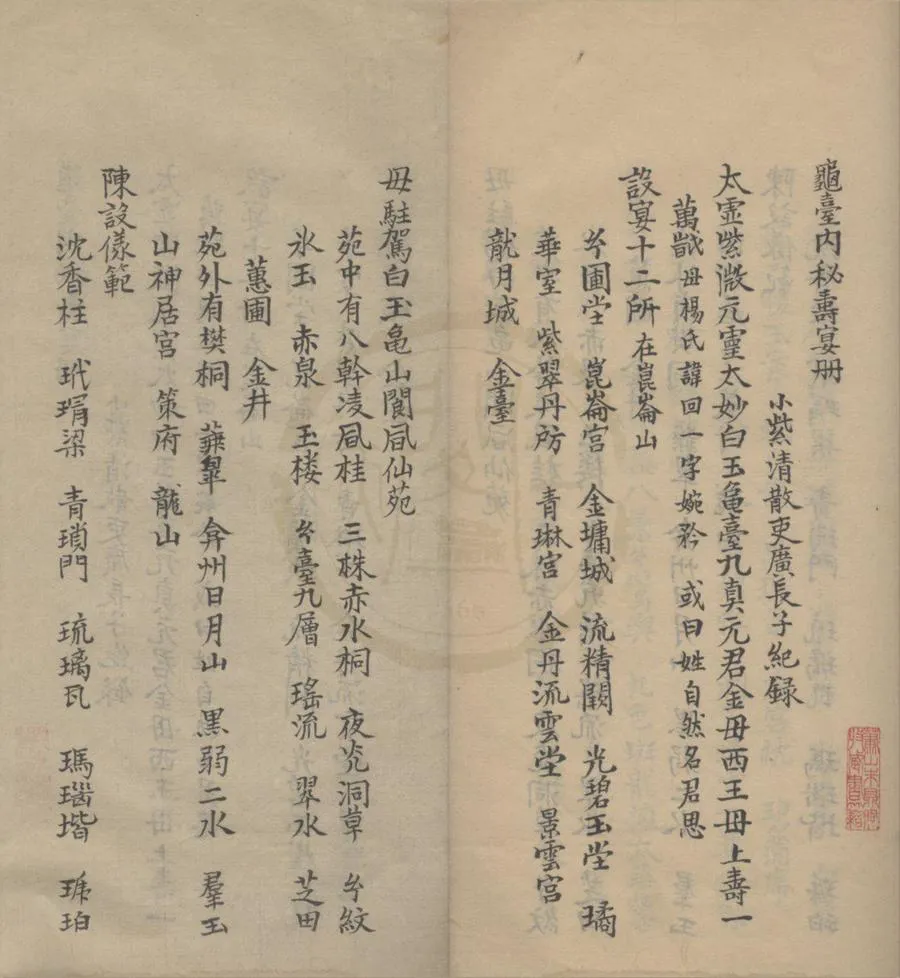 龜臺内秘壽宴册
小紫清散吏廣長子紀録
太霊紫微元靈太妙白玉亀臺九真元君金母西王毋上壽一
萬歳毋楊氏諱回一字婉矜 或曰姓自然名君思
設宴十二所在崑崙山
玄圃堂 崑崙宮 金墉城 流精闕 光碧玉堂 璚
華室 紫翠丹房 青琳宮 金丹流雲堂 景雲宮
龍月城 金臺
毋駐駕白玉亀山閬凨仙苑
苑中有八幹凌凨桂 三株赤水桐 夜光洞草 玄紋
氷玉 赤泉 玉楼 玄臺九層 瑤流 翠水 芝田
蕙圃 金井
苑外有樊桐 弇州日月山 黒弱二水 羣玉
山神居宮 策府 龍山
陳設様範
沈香柱 玳瑁梁 青瑣門 琉璃瓦 瑪瑙堦 琥珀